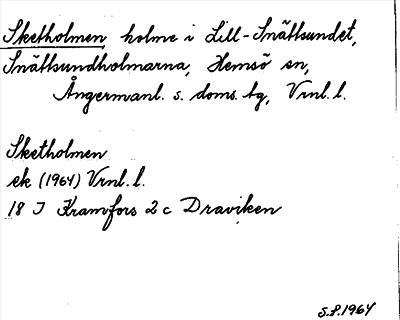 Sketholmen, holme i Lill-Snättsundet,
Snättsundholmarna, Hemsö sn,
Ångermanl. s. doms. tg, Vrnl. l.
Sketholmen
ek (1964) Vrnl. l.
18 J Kramfors 2 c Draviken
S.P. 1964